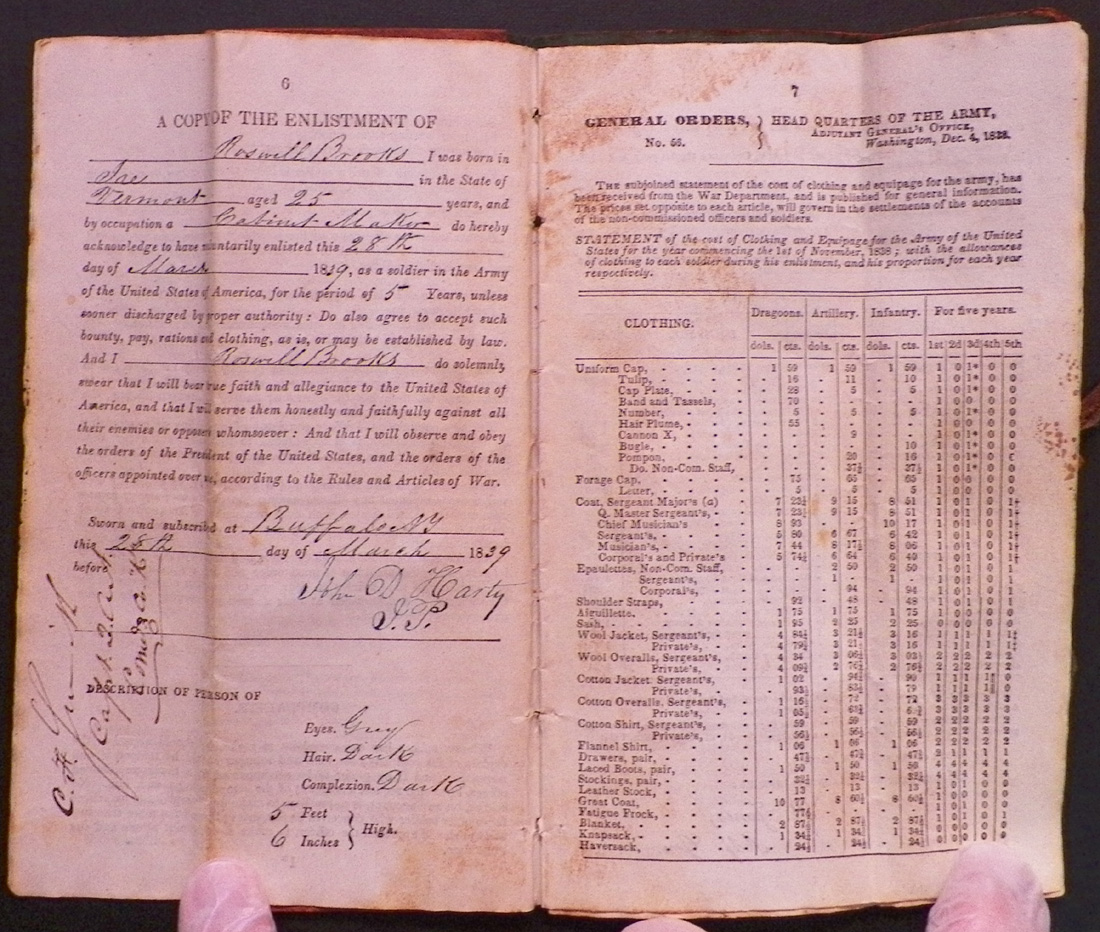 6
A COPY OF THE ENLISTMENT OF
Roswell Brooks I was born in
in the State of
Vermont aged 25 years, and
by occupation a Cabinet Maker do hereby
acknowledge to have voluntarily enlisted this 28th
day of March 1839, as a soldier in the Army
of the United States of America, for the period of 5 Years, unless
sooner discharged by proper authority: Do also agree to accept such
bounty, pay, rations and clothing, as is, or may be established by law.
And I Roswell Brooks do solemnly
swear that I will bear true faith and allegiance to the United States of
America, and that I will serve them honestly and faithfully against all
their enemies or opposers whomsoever: And that I will observe and obey
the orders of the President of the United States, and the orders of the
officers appointed over me, according to the Rules and Articles of War.
Sworn and subscribed at Buffalo NY
this 28th day of March 1839
before
John D Harty
J.P.
DESCRIPTION OF PERSON OF
Eyes. Grey
Hair. Dark
Complexion. Dark
5 Feet
6 Inches } High.
C. F. Smith
Capt
7
GENERAL ORDERS, } HEAD QUARTERS OF THE ARMY,
No. 56. ADJUTANT GENERAL'S OFFICE,
Washington, Dec. 4, 1838.
THE subjoined statement of the cost of clothing and equipage for the army, has
been received from the War Department, and is published for general information.
The prices set opposite to each article, will govern in the settlements of the accounts
of the non-commissioned officers and soldiers.
STATEMENT of the cost of Clothing and Equipage for the Army of the United
States for the year commencing the 1st of November, 1838; with the allowances
of clothing to each soldier during his enlistment, and his proportion for each year
respectively.
CLOTHING. Dragoons. Artillery. Infantry. For five years.
dols. cts. dols. cts. dols. cts. 1st 2d 3d 4th 5th
Uniform Cap, 1 59 1 59 1 59 1 0 1* 0 0
Tulip, 16 11 10 1 0 1* 0 0
Cap Plate, 28 5 5 1 0 1* 0 0
Band and Tassels, 70 1 0 0 0 0
Number, 5 5 5 1 0 1* 0 0
Hair Plume, 55 1 0 0 0
Cannon X, 9 1 0 1* 0 0
Bugle, 10 1 0 1* 0 0
Pompon, 20 16 1 0 1* 0
Do. Non-Com. Staff, 37½ 37½ 1 0 1* 0 0
Forage Cap, 75 65 65 1 0 0
Letter, 5 5 5 1 0
Coat, Sergeant Major's (a) 7 23½ 9 15 8 51 1 0 1 0
Q. Master Sergeant's, 7 23½ 9 15 8 51 1 0 1 0
Chief Musician's 8 93 10 17 1 0 1 0
Sergeant's, 5 80 6 67 6 42 1 0 1 0
Musician's, 7 44 8 17½ 8 06 1 0 1 0
Corporal's and Private's 5 74½ 6 64 6 40 1 0 1 0
Epaulettes, Non-Com. Staff, 2 50 2 50 1 0 1 0 1
Sergeant's, 1 1 1 0 1 0 1
Corporal's, 94 94 1 0 1 0 1
Shoulder Straps, 92 48 48 1 0 1 0 1
Aiguillette, 1 75 1 75 1 75 1 0 1 0
Sash, 1 95 2 25 2 25 1 0 0 0 0
Wool Jacket, Sergeant's, 4 84½ 3 21½ 3 16 1 1 1 1
Private's, 4 79½ 3 21 3 16 1 1 1 1
Wool Overalls, Sergeant's, 4 34 3 06½ 3 03½ 2 2 2 2 2
Private's, 4 09½ 2 76½ 2 76½ 2 2 2 2 2
Cotton Jacket, Sergeant's, 1 02 94½ 90 1 1 1 0
Private's, 93½ 83½ 79 1 1 1 0
Cotton Overalls, Sergeant's, 1 16½ 72 72 3 3 3 3 3
Private's, 1 05½ 3 3 3 3 3
Cotton Shirt, Sergeant's, 59 59 59 2 2 2 2 2
Private's, 56½ 56½ 56½ 2 2 2 2 2
Flannel Shirt, 1 06 1 06 1 06 2 2 2 2 2
Drawers, pair, 47½ 47½ 47½ 2 1
Laced Boots, pair, 1 50 1 50 1 50 4 4 4 4 4
Stockings, pair, 32½ 32½ 32½ 4 4 4 4 4
Leather Stock, 13 13 13 1 0
Great Coat, 10 77 8 60½ 8 60½ 1 0 0 0 0
Fatigue Frock, 77½ 1 0 1 0
Blanket, 2 87½ 2 87½ 2 87½ 1 0
Knapsack, 1 34½ 1 34½ 1 34½ 0 0 0 0 0
Haversack, 24½ 24½ 24½ 0 0 0 0 0